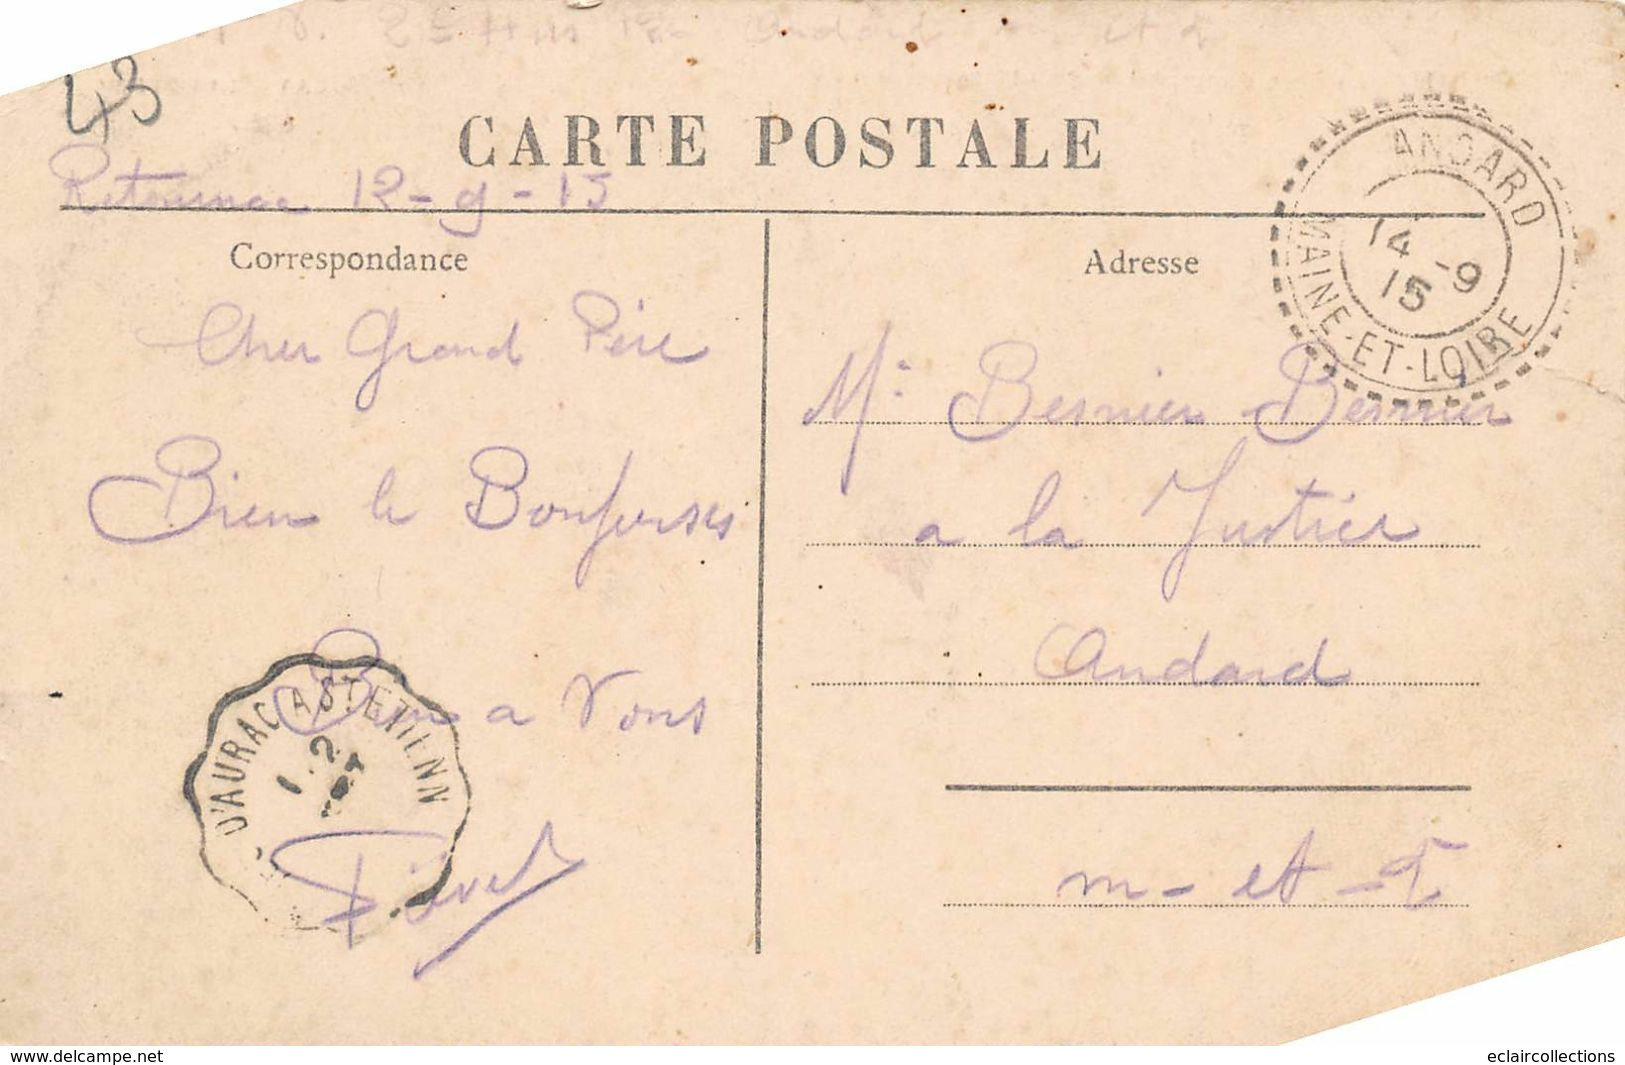 43
CARTE POSTALE
Retournac 12-9-15
Correspondance
Adresse
ANDARD
14-9
15
MAINE-ET-LOIRE
Cher Grand Père
Bien le Bonjour
Bien a Vous
Mr Besnier Besnier
a la Justice
Andard
m-et-L
D'AURAC A ST ETIENN
www.delcampe.net
eclaircollections